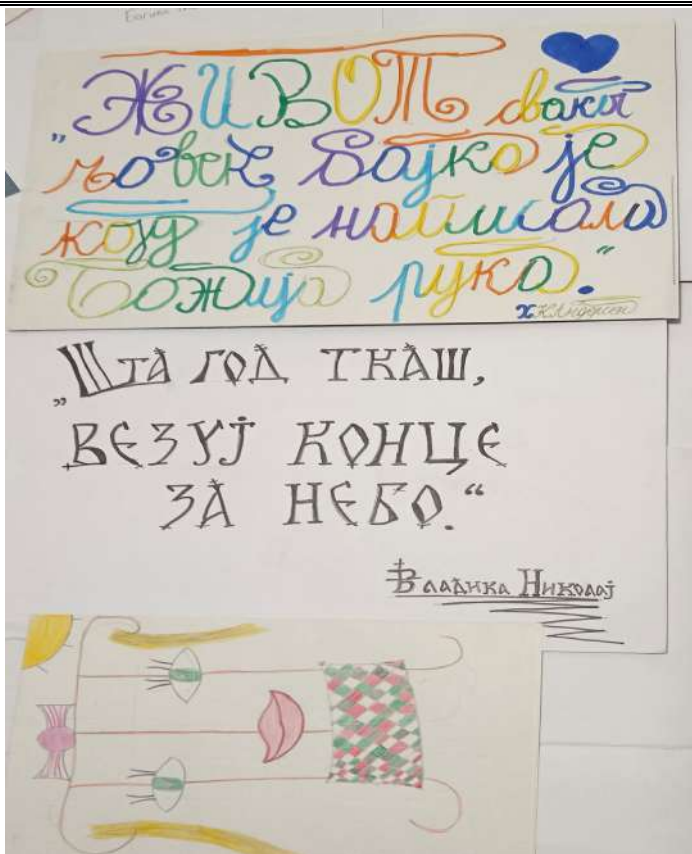 „ЖИВОТ
бајка је
коју је написала
Божија рука.“
Х.К.Андерсен
„Шта год ткаш,
везуј конце
за небо.“
Владика Николај